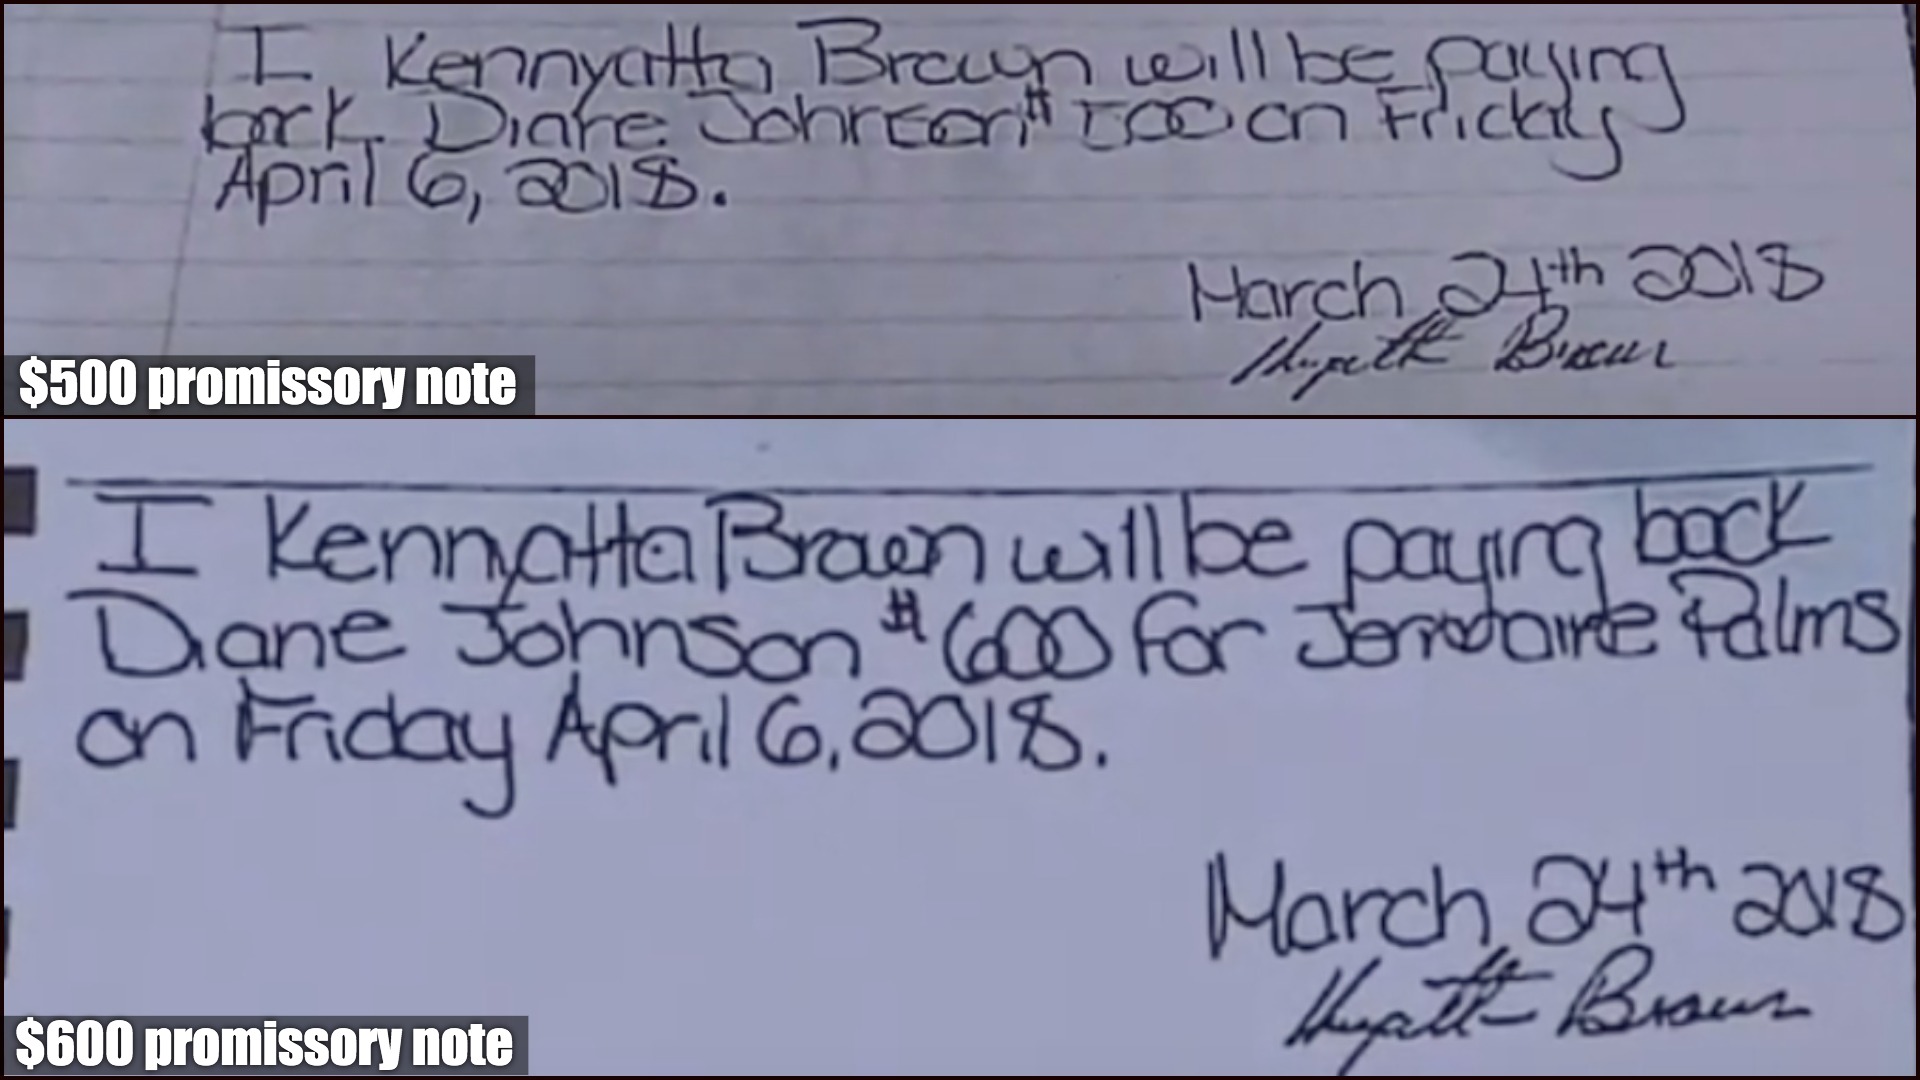 I Kennyatta Brown will be paying
back Diane Johnson $500 on Friday
April 6, 2018.
March 24th 2018
Brown
$500 promissory note
I Kennyatta Brown will be paying back
Diane Johnson $600 for Jermaine Palms
on Friday April 6, 2018.
March 24th 2018
Brown
$600 promissory note